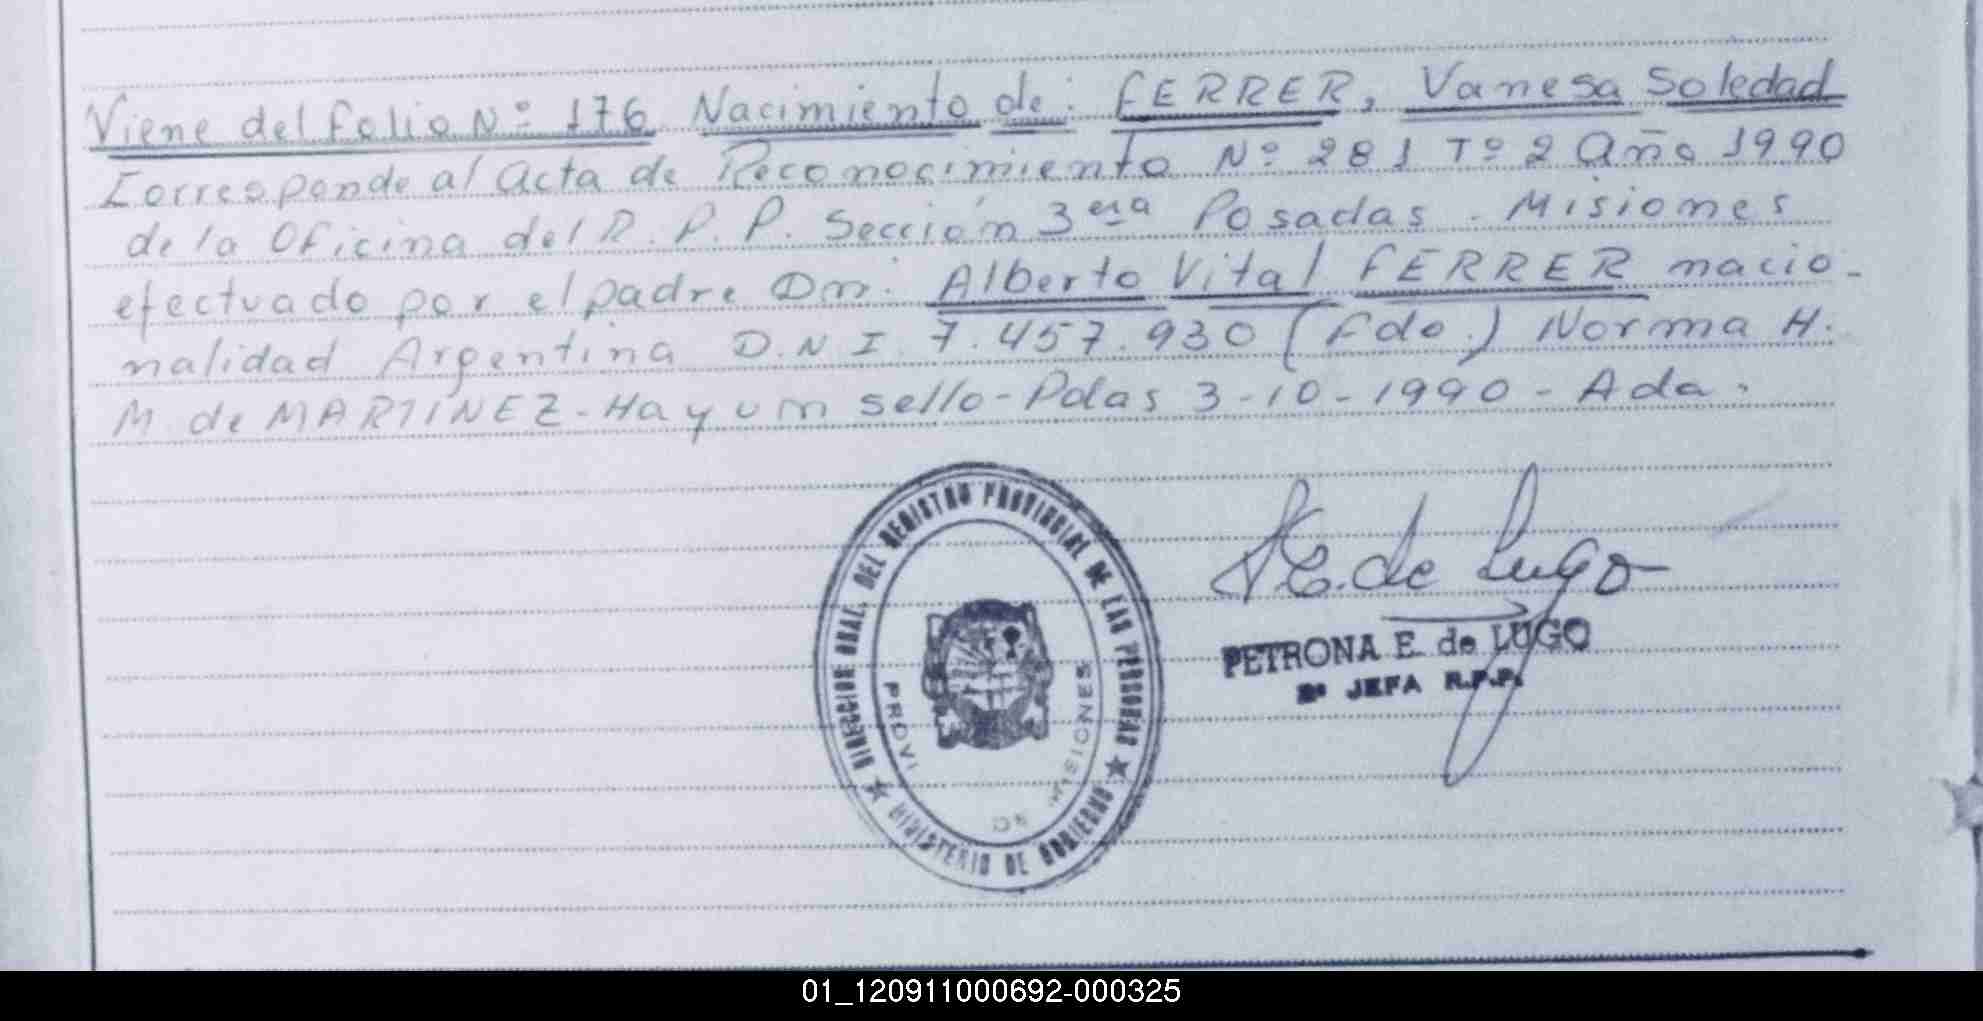 Viene del folio Nº 176 Nacimiento de: FERRER, Vanesa Soledad
Corresponde al Acta de Reconocimiento Nº 281 Tº 2 Año 1990
de la Oficina del R.P.P. Sección 3era Posadas - Misiones
efectuado por el padre Dn. Alberto Vital FERRER nacio-
nalidad Argentina D.N.I. 7.457.930 (Fdo.) Norma H.
M. de MARTINEZ - Hay un sello - Pdas 3-10-1990 - Ada.
DIRECCION GRAL. DEL REGISTRO PROVINCIAL DE LAS PERSONAS
MINISTERIO DE GOBIERNO
MISIONES
E. de Lugo
PETRONA E. de LUGO
2ª JEFA R.P.P.
01_120911000692-000325